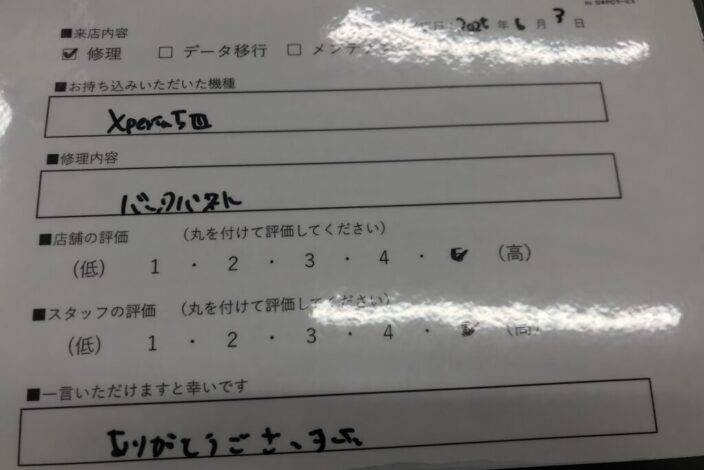 ■来店内容 2025年6月3日
☑ 修理 □ データ移行 □ メンテナンス
■お持ち込みいただいた機種
Xperia 5 III
■修理内容
バックパネル
■店舗の評価 （丸を付けて評価してください）
（低） 1 ・ 2 ・ 3 ・ 4 ・ 5 （高）
■スタッフの評価 （丸を付けて評価してください）
（低） 1 ・ 2 ・ 3 ・ 4 ・ 5 （高）
■一言いただけますと幸いです
ありがとうございました